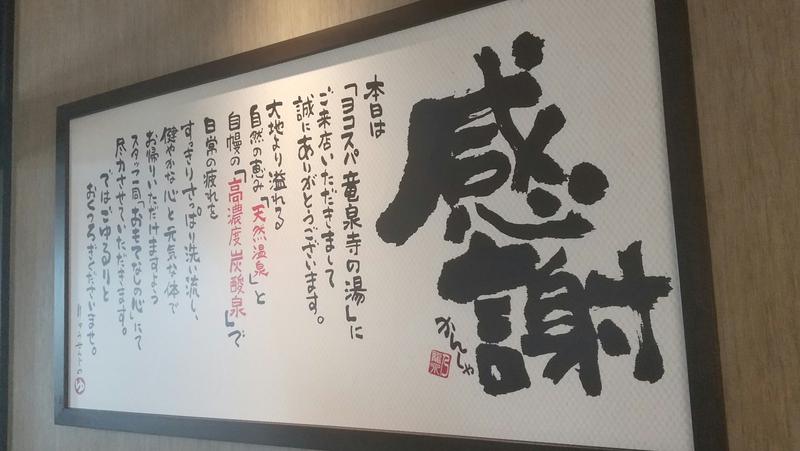 感謝
かんしゃ
本日は
「ヨコスパ竜泉寺の湯」に
ご来店いただきまして
誠にありがとうございます。
大地より溢れる
自然の恵み「天然温泉」と
自慢の「高濃度炭酸泉」で
日常の疲れを
すっきりさっぱり洗い流し、
健やかな心と元気な体で
お帰りいただけますよう
スタッフ一同「おもてなしの心」にて
尽力させていただきます。
ではごゆるりと
おくつろぎくださいませ。